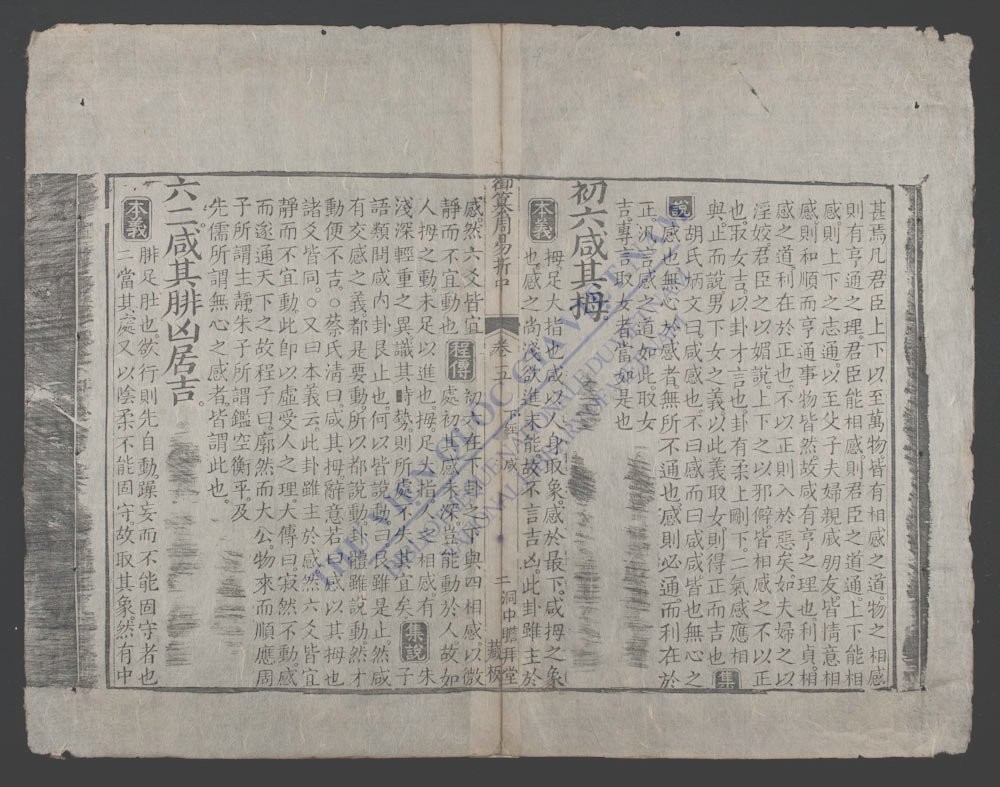 甚焉凡君臣上下以至萬物皆有相感之道。物之相感
則有亨通之理。君臣能相感。則君臣之道通。上下能相
感。則上下之志通。以至父子夫婦親戚朋友。皆情意相
感。則和順而亨通。事物皆然。故咸有亨之理也。利貞。相
感之道。利在於正也。不以正。則入於惡矣。如夫婦之以
淫姣。君臣之以媚說。上下之以邪僻。皆相感之不以正
也。取女吉。以卦才言也。卦有柔上剛下。二氣感應。相
與。止而說。男下女之義。以此義取女。則得正而吉也 集
說 胡氏炳文曰咸感也不曰感而曰咸咸皆也無心之
感也無心於感者。無所不通也。感則必通。而利在於
正。汎言感之道如此。取女
吉。專言取女者當如是也
初六咸其拇
本義 拇足大指也咸以人身取象。感於最下。咸拇之象
也。感之尚淺。欲進未能。故不言吉凶。此卦雖主於
御纂周易折中 卷五 下經 咸 二 洞中瞻拜堂藏板
感。然六爻皆宜
靜而不宜動也 程傳 初六在下卦之下。與四相感。以微
處初。其感未深。豈能動於人。故如
人拇之動。未足以進也。拇足大指。人之相感。有
淺深輕重之異。識其時勢。則所處不失其宜矣。集說 朱子
語類問咸內卦艮止也。何以皆說動。曰咸雖是止然咸
有交感之義。都是要動。所以都說動。卦體雖說動。然才
動便不吉。○蔡氏清曰咸其拇。辭意若曰感以其拇也
諸爻皆同。○又曰本義云。此卦雖主於感。然六爻皆宜
靜而不宜動。此卽以虛受人之理。大傳曰寂然不動。感
而遂通天下之故。程子曰。廓然而大公。物來而順應。周
子所謂主靜。朱子所謂鑑空衡平。及
先儒所謂無心之感者。皆謂此也。
六二。咸其腓凶居吉。
本義 腓足肚也。欲行則先自動。躁妄而不能固守者也
二當其處。又以陰柔不能固守。故取其象。然有中
THƯ VIỆN QUỐC GIA VIỆT NAM
NATIONAL LIBRARY OF VIETNAM